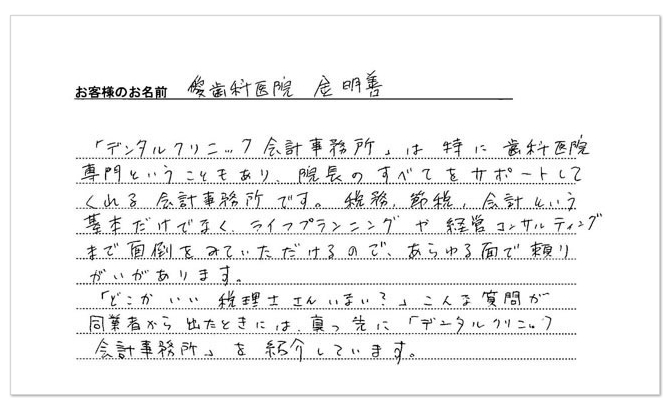 お客様のお名前 優歯科医院 金明善
「デンタルクリニック会計事務所」は特に歯科医院
専門ということもあり、院長のすべてをサポートして
くれる会計事務所です。税務、節税、会計という
基本だけでなく、ライフプランニングや経営コンサルティング
まで面倒をみていただけるので、あらゆる面で頼り
がいがあります。
「どこかいい税理士さんいない?」こんな質問が
同業者から出たときには、真っ先に「デンタルクリニック
会計事務所」を紹介しています。